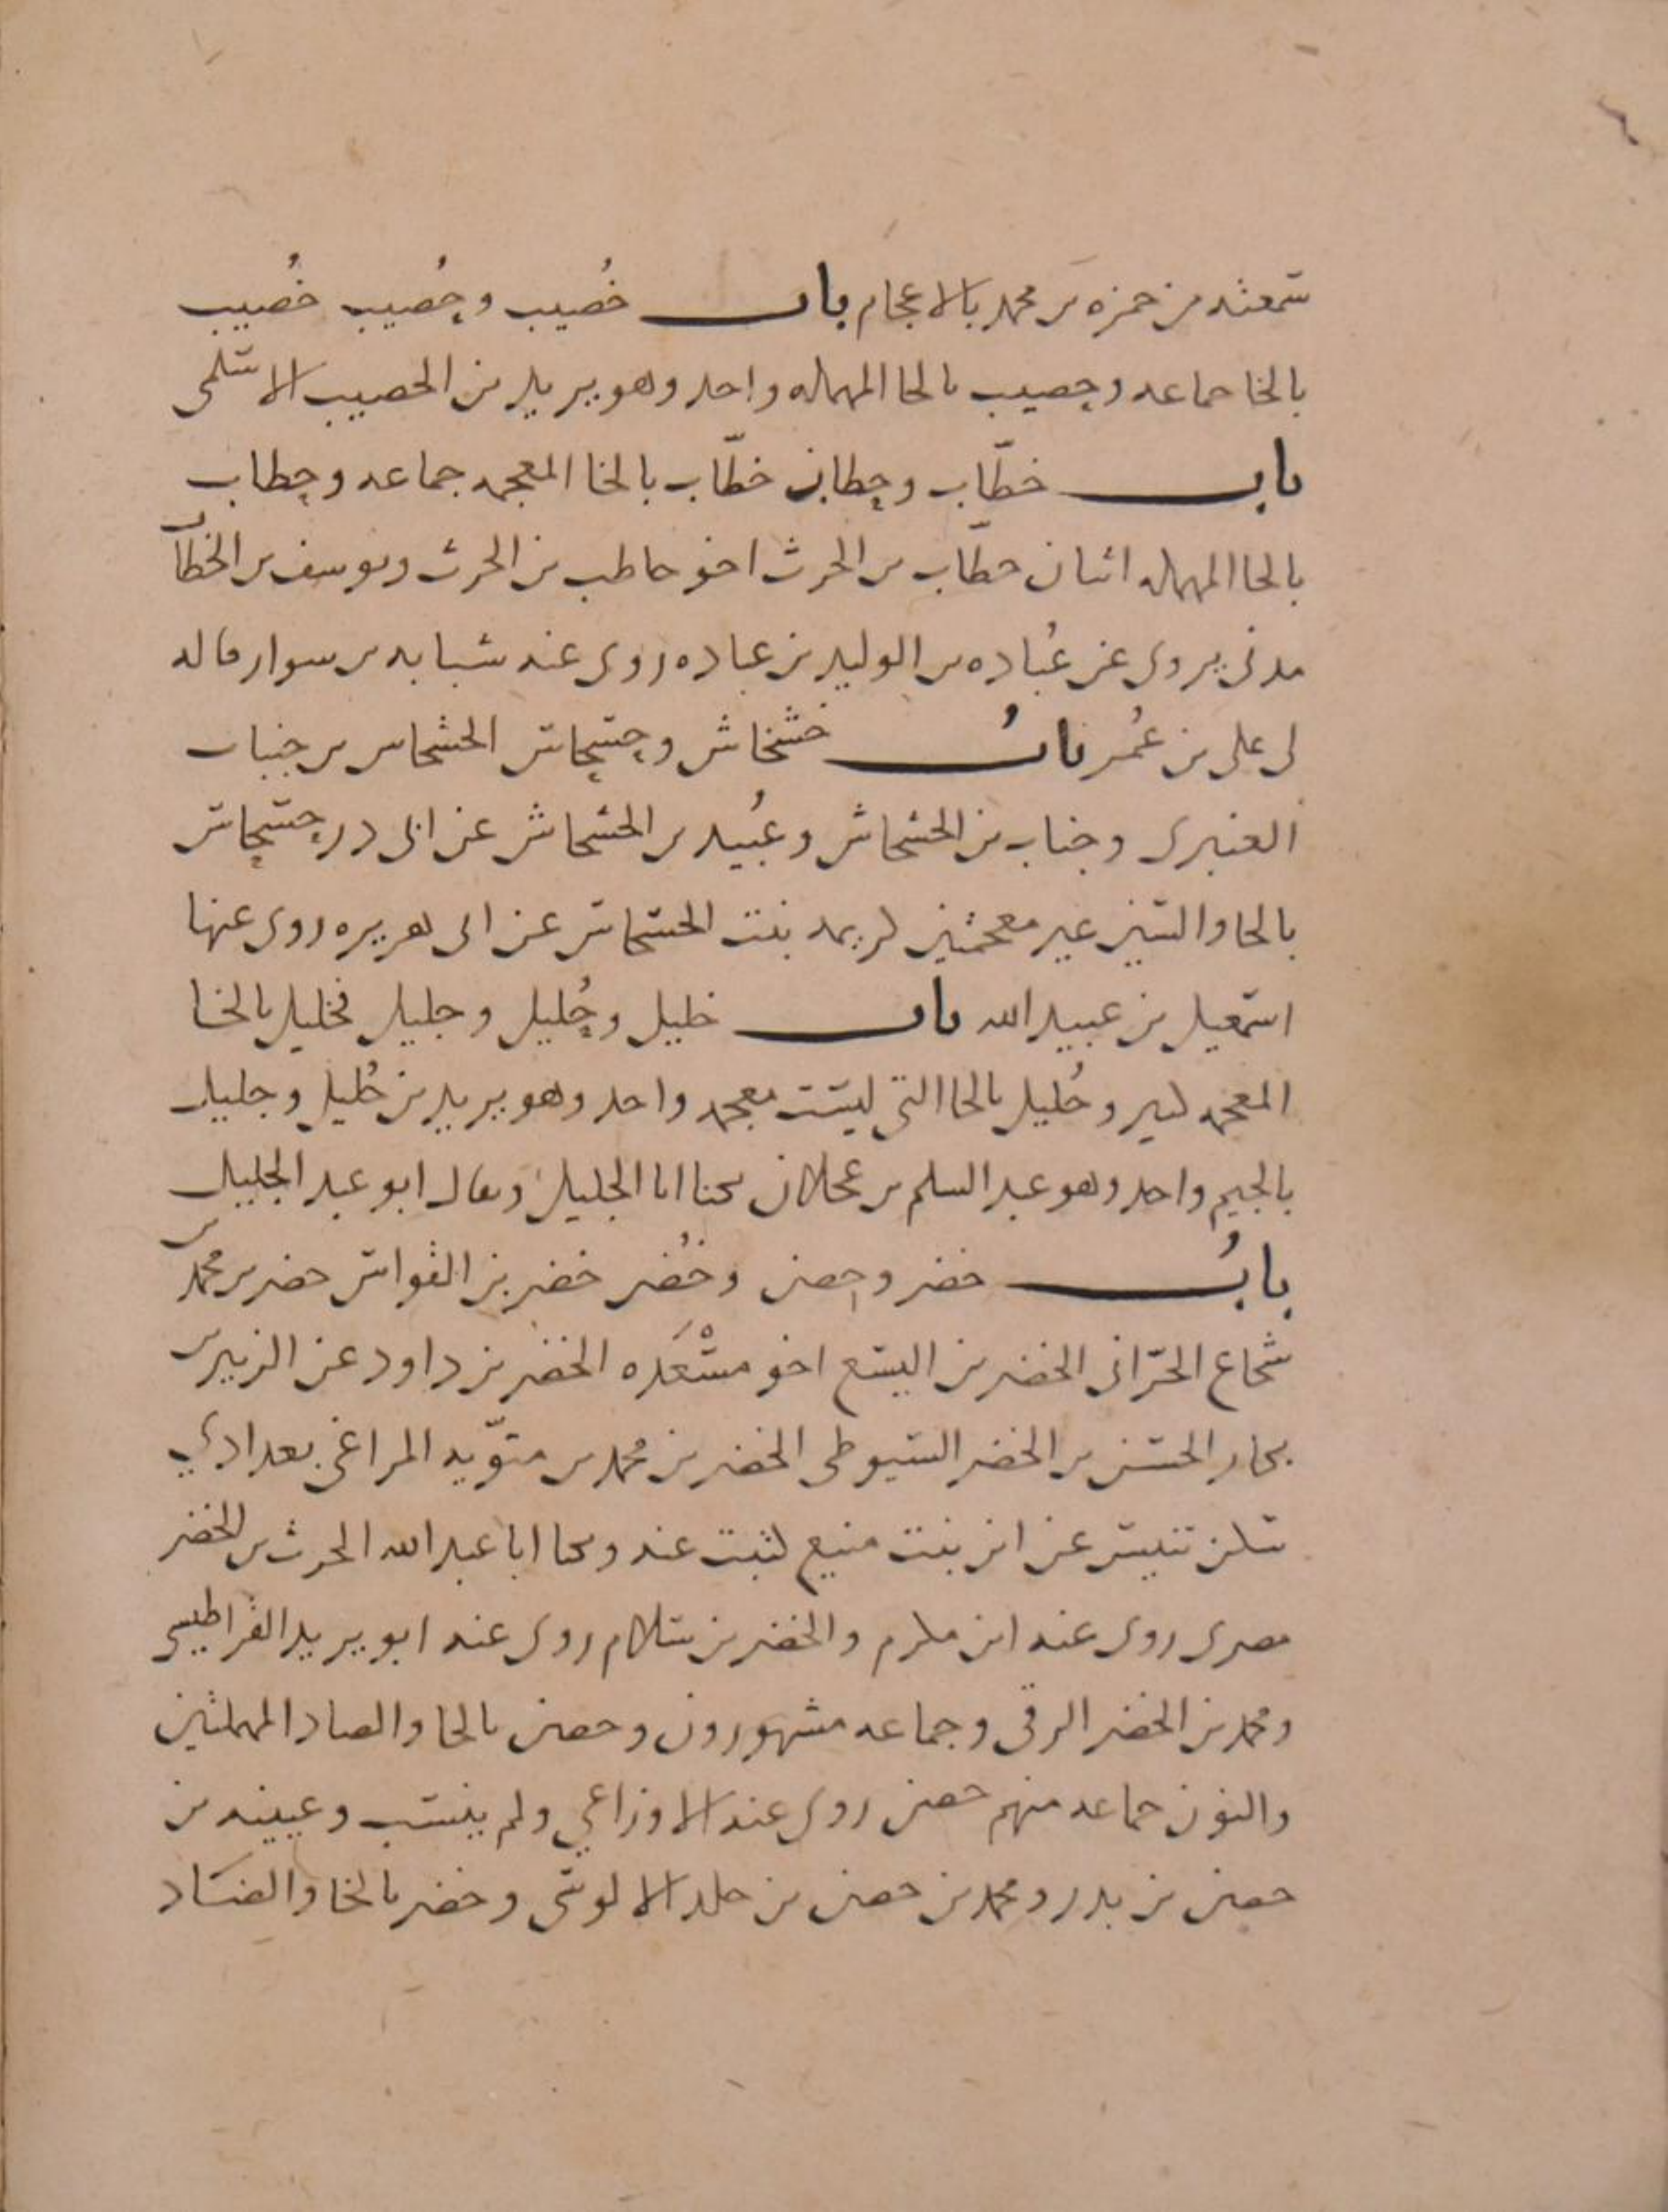 سمعته من حمزه بن محمد بالاعجام باب خُصيب وحُصيب خُصيب
بالخا جماعه وحصيب بالحا المهمله واحد وهو بريد بن الحصيب الاسلمى
باب خطّاب وحطاب خطّاب بالخا المعجمه جماعه وحطاب
بالحا المهمله اثنان حطّاب بن الحرث اخو حاطب بن الحرث ويوسف بن الخطّاب
مدنى يروى عن عُباده بن الوليد بن عباده روى عنه شبابه بن سوار قاله
لى على بن عُمر بابُ خشخاش وحسحاس الخشخاش بن جناب
العنبرى وجناب بن الخشخاش وعُبيد بن الخشخاش عن ابى در حسحاس
بالحا والسين غير معجمتين كريمه بنت الحسحاس عن ابى هريره روى عنها
اسمعيل بن عبيد الله باب خليل وحُليل وجليل فخليل بالخا
المعجمه كثير وحُليل بالحا التى ليست معجمه واحد وهو يريد بن حُليل وجليل
بالجيم واحد وهو عبد السلم بن عجلان يكنا ابا الجليل ويقال ابو عبد الجليل
بابُ خضر وحصن وخُضر خضر بن القواس خضر بن محمد بن
شجاع الحرّانى الخضر بن اليسع اخو مسْعَده الخضر بن داود عن الزبير بن
بكار الحسن بن الخضر السيوطى الخضر بن محمد بن متوّيه المراغى بغدادي
سكن تنيس عن ابن بنت منيع كتبت عنه ويكنا ابا عبد الله الحرث بن الخضر
مصرى روى عنه ابن ملرم والخضر بن سلام روى عنه ابو يريد القراطيسى
ومحمد بن الخضر الرقى وجماعه مشهورون وحصن بالحا والصاد المهملتين
والنون جماعه منهم حصن روى عنه الاوزاعي ولم ينسب وعيينه بن
حصن بن بدر ومحمد بن حصن بن خلد الالوسى وخضر بالخا والضاد